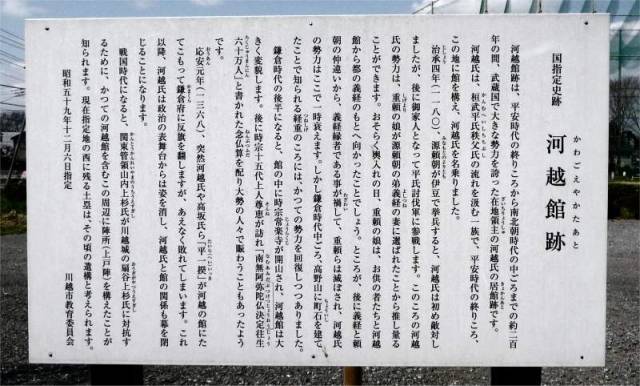 国指定史跡
かわごえやかたあと
河越館跡
河越館跡は、平安時代の終りころから南北朝時代の中ごろまでの約二百
年の間、武蔵国で大きな勢力を誇った在地領主の河越氏の居館跡です。
河越氏は、桓武平氏秩父氏の流れを汲む一族で、平安時代の終りころ、
この地に館を構え、河越氏を名乗りました。
治承四年(一一八〇)、源頼朝が伊豆で挙兵すると、河越氏は初め敵対し
ましたが、後に御家人となって平氏討伐軍に参戦します。このころの河越
氏の勢力は、重頼の娘が源頼朝の弟義経の妻に選ばれたことから推し量る
ことができます。おそらく輿入れの日、重頼の娘は、お供の者たちと河越
館から都の義経のもとへ向かったことでしょう。ところが、後に義経と頼
朝の仲違いから、義経縁者である事が禍して、重頼らは滅ぼされ、河越氏
の勢力はここで一時衰えます。しかし鎌倉時代中ごろ、高野山に町石を建て
たことで知られる経重のころには、かつての勢力を回復しつつありました。
鎌倉時代の後半になると、館の中に時宗常楽寺が開山され、河越館は大
きく変貌します。後に時宗十五代上人尊恵が訪れ「南無阿弥陀仏決定往生
六十万人」と書かれた念仏算を配り大勢の人々で賑わうこともあったよう
です。
応安元年(一三六八)、突然河越氏や高坂氏ら「平一揆」が河越の館にた
てこもって鎌倉府に反旗を翻しますが、あえなく敗れてしまいます。これ
以降、河越氏は政治の表舞台からは姿を消し、河越氏と館の関係も幕を閉
じることになります。
戦国時代になると、関東管領山内上杉氏が川越城の扇谷上杉氏に対抗す
るために、かつての河越館を含むこの周辺に陣所「上戸陣」を構えたことが
知られます。現在指定地の西に残る土塁は、その頃の遺構と考えられます。
昭和五十九年十二月六日指定
川越市教育委員会